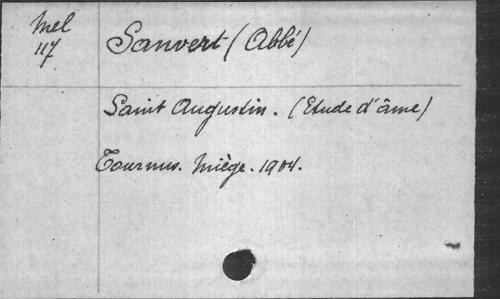 Mel
117
Sanvert (Abbé)
Saint Augustin. (Etude d'âme)
Tournus. Miège. 1904.